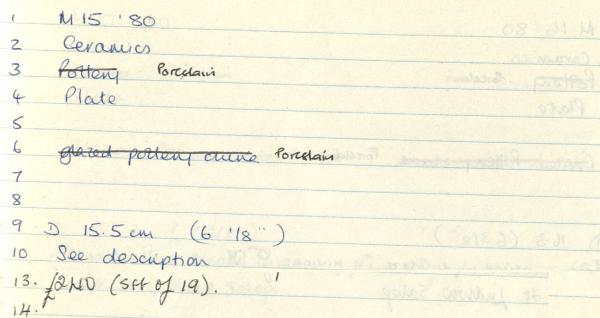 1 M15 '80
2 Ceramics
3 Pottery Porcelain
4 Plate
5
6 glazed pottery china Porcelain
7
8
9 D 15.5cm (6 1/8")
10 See description
13. (Set of 19).
14.